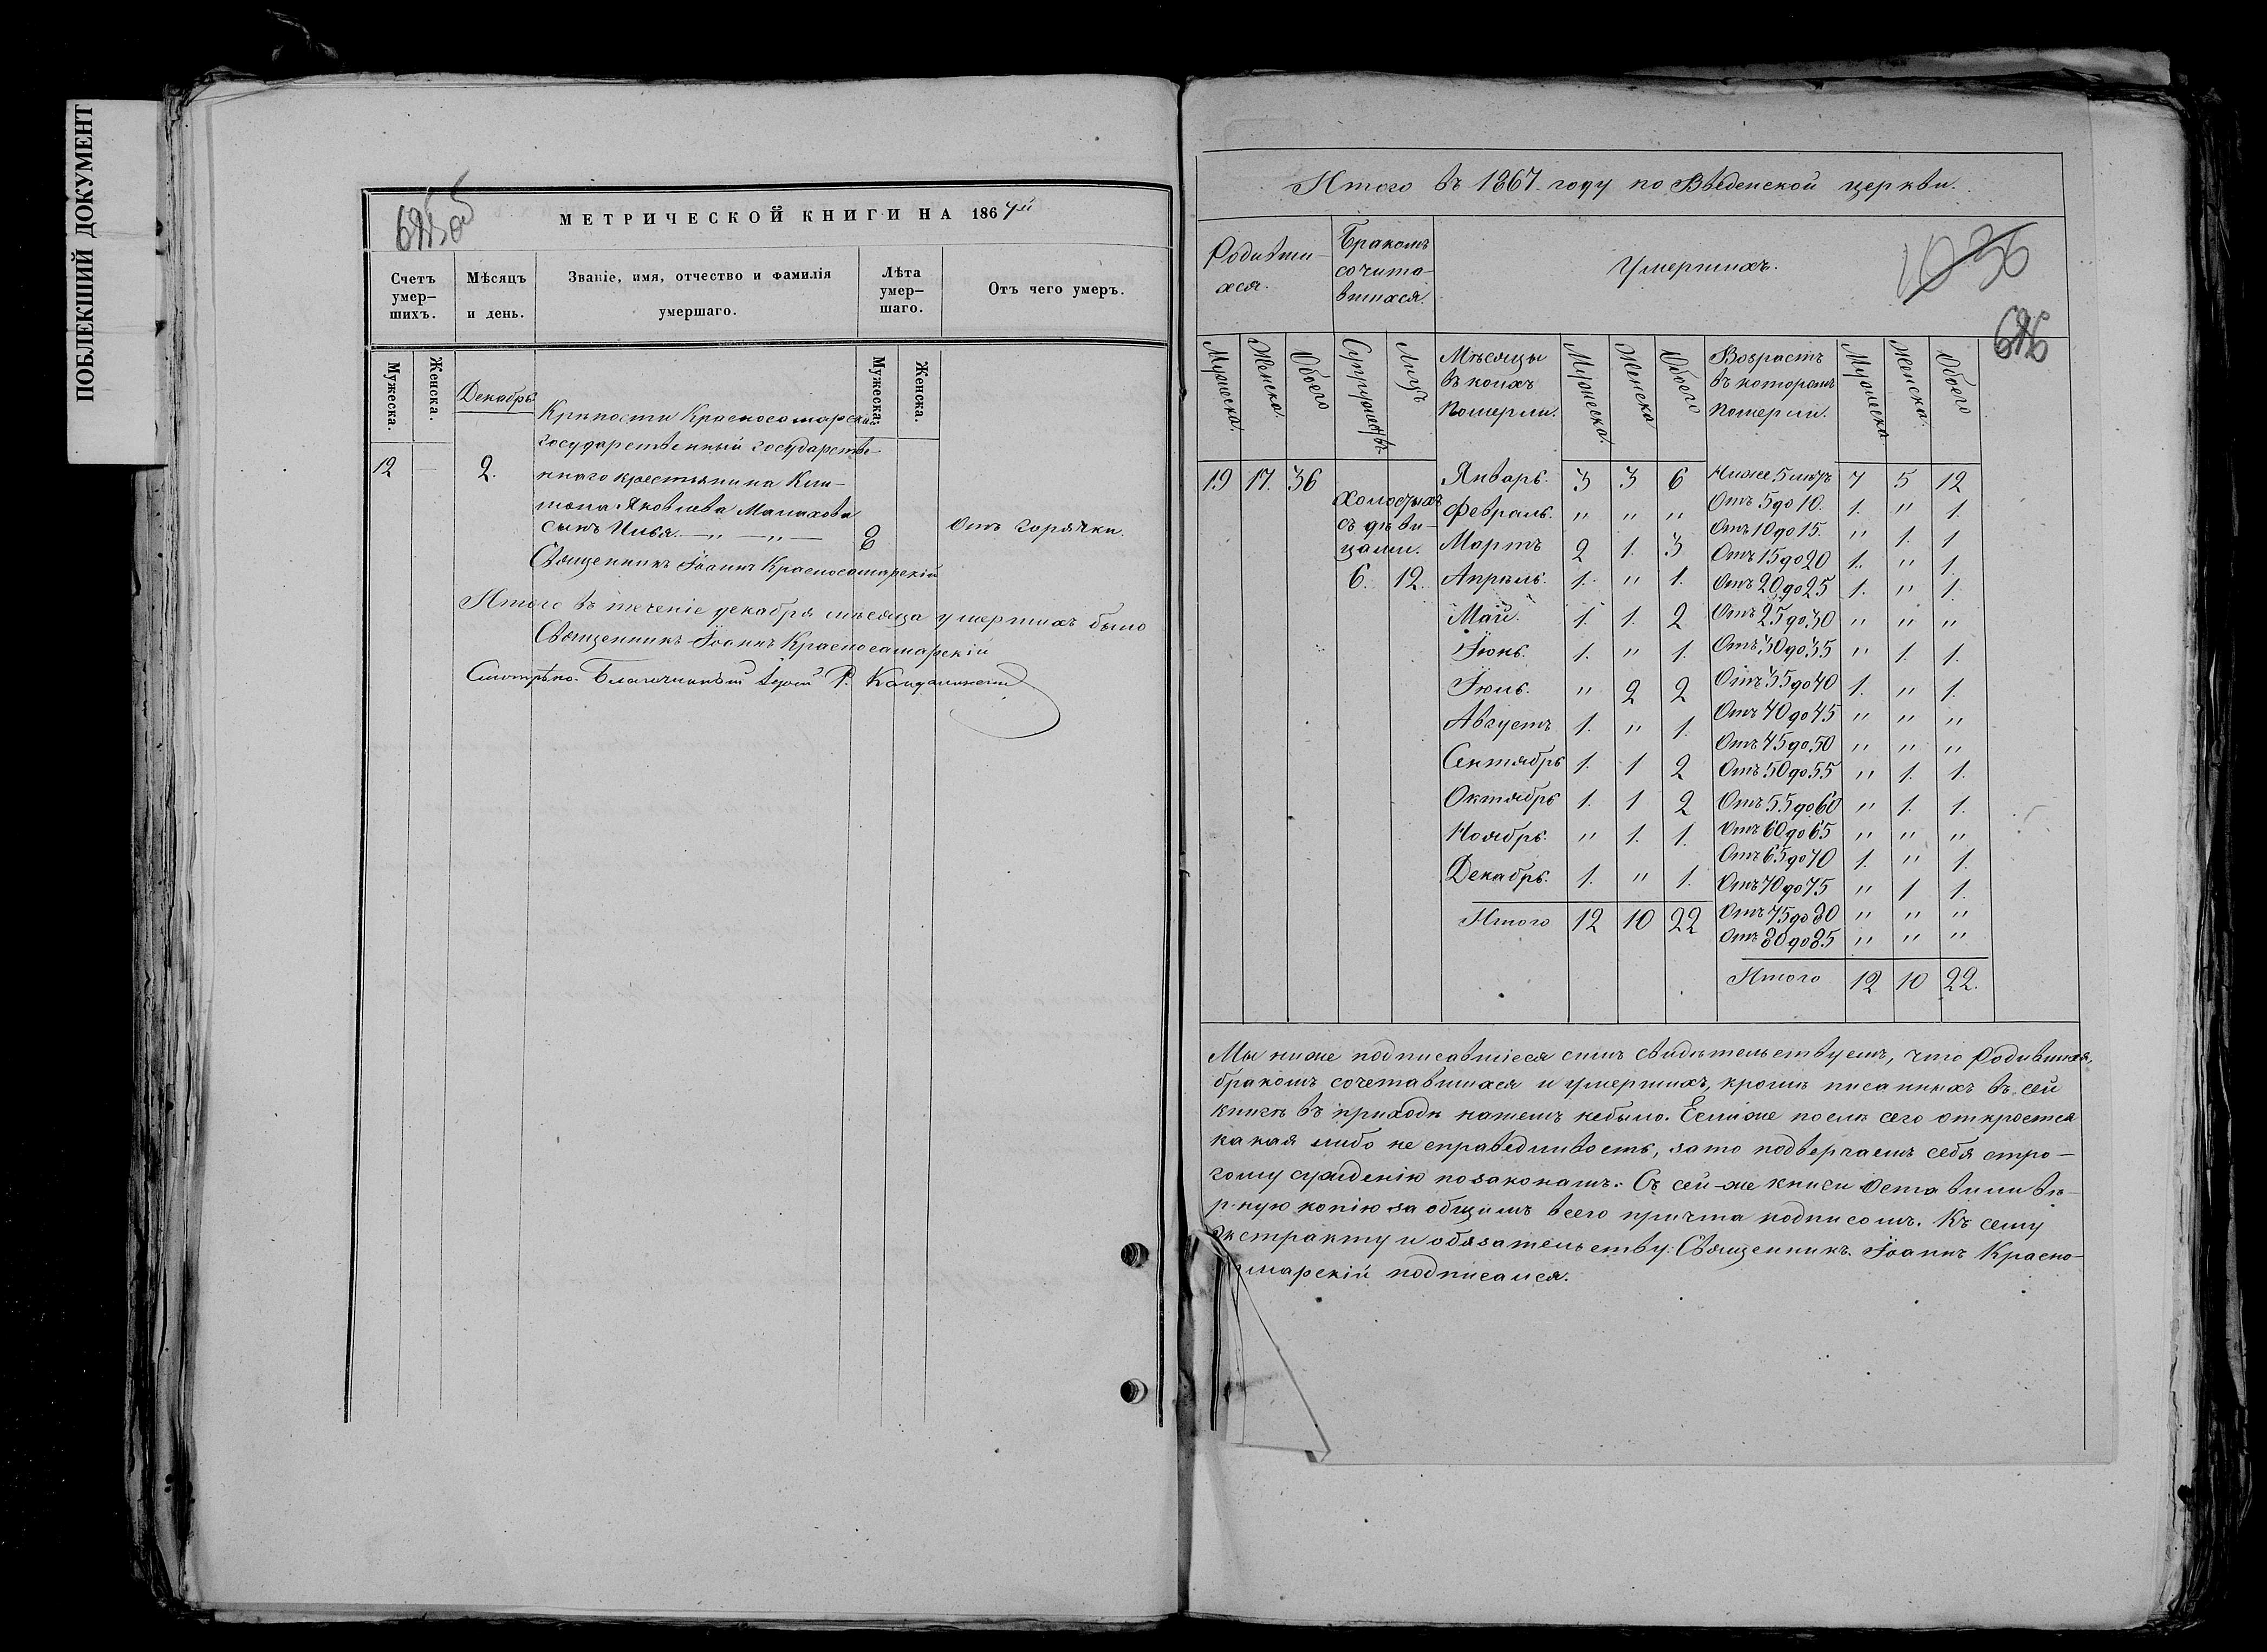 ПОБЛЕКШИЙ ДОКУМЕНТ
МЕТРИЧЕСКОЙ КНИГИ НА 1867й
Счетъ умер-шихъ.
Мѣсяцъ и день.
Званіе, имя, отчество и фамилія умершаго.
Лѣта умер-шаго.
Отъ чего умеръ.
Мужеска. Женска.
Мужеска. Женска.
Декабрь
Крѣпости Красносамарской
государственный государстве-
12 2. ннаго крестьянина Кли-
мона Яковлева Малахова
сынъ Илья. —〃—〃— 8 Отъ горячки.
Священникъ Іоаннъ Красносамарскій
Итого въ теченіе декабря мѣсяца умершихъ было
Священникъ Іоаннъ Красносамарскій
Смотрѣно. Благочинный
Итого въ 1867. году по Введенской церкви.
Родивши-хся.
Бракомъ сочита-вшихся.
Умершихъ.
1036
696
Мужеска. Женска. Обоего
Супружествъ Лицъ
Мѣсяцы въ коихъ Померли. Мужеска. Женска Обоего
Возрастъ въ которомъ Померли. Мужеска Женска. Обоего
19 17. 36
холостыхъ
съ дѣви-
цами.
6. 12.
Январь. 3 3 6
Февраль. 〃 〃 〃
Мартъ 2 1. 3
Апрѣль. 1. 〃 1.
Май. 1. 1. 2
Іюнь. 1. 〃 1.
Іюль. 〃 2 2
Августъ 1. 〃 1.
Сентябрь 1. 1 2
Октябрь 1. 1 2
Ноябрь. 〃 1. 1.
Декабрь. 1. 〃 1.
Итого 12 10 22
Ниже 5 лѣтъ 7 5 12
Отъ 5 до 10. 1. 〃 1.
Отъ 10 до 15. 〃 1. 1
Отъ 15 до 20 1. 〃 1.
Отъ 20 до 25 1. 〃 1.
Отъ 25 до 30 〃 〃 〃
Отъ 30 до 35 〃 1. 1.
Отъ 35 до 40 1. 〃 1.
Отъ 40 до 45 〃 〃 〃
Отъ 45 до 50 〃 〃 〃
Отъ 50 до 55 〃 1. 1.
Отъ 55 до 60 〃 1. 1.
Отъ 60 до 65 〃 〃 〃
Отъ 65 до 70 1. 〃 1.
Отъ 70 до 75 〃 1 1.
Отъ 75 до 80 〃 〃 〃
Отъ 80 до 85 〃 〃 〃
Итого 12 10 22.
Мы ниже подписавшіеся симъ свидѣтельствуемъ, что Родившихся,
бракомъ сочетавшихся и умершихъ, кромѣ писанныхъ въ сей
книгѣ въ приходѣ нашемъ небыло. Если же послѣ сего откроется
какая либо не справедливость, за то подвергаемъ себя стро-
гому сужденію по законамъ. Съ сей-же книги Оставили вѣ-
рную копію за общимъ всего причта подписомъ. Къ сему
экстракту и обязательству: Священникъ Іоаннъ Красно-
самарскій подписался.